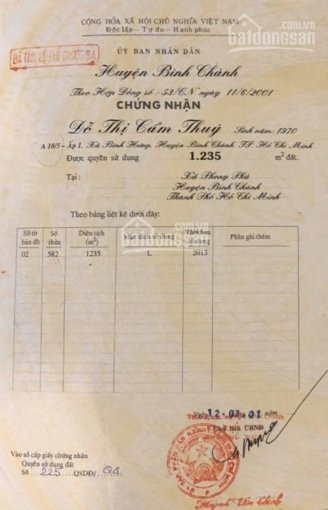 CỘNG HÒA XÃ HỘI CHỦ NGHĨA VIỆT NAM
Độc lập - Tự do - Hạnh phúc
batdongsan
ỦY BAN NHÂN DÂN
Huyện Bình Chánh
Theo Hợp Đồng số 58/CN ngày 11/6/2001
CHỨNG NHẬN
Đỗ Thị Cẩm Thuý Sinh năm: 1970
A 10/5 - Ấp 1, Xã Bình Hưng, Huyện Bình Chánh, TP. Hồ Chí Minh
Được quyền sử dụng 1.235 m² đất.
Tại: Xã Phong Phú
Huyện Bình Chánh
Thành Phố Hồ Chí Minh
Theo bảng liệt kê dưới đây:
Số tờ bản đồ Số thửa Diện tích (m²) Mục đích sử dụng Thời hạn sử dụng Phần ghi thêm
02 582 1235 L 2015
Ngày 12-07-01
TM UBND
Vào sổ cấp giấy chứng nhận
Quyền sử dụng đất
Số 225 QSDĐ/ Q4.